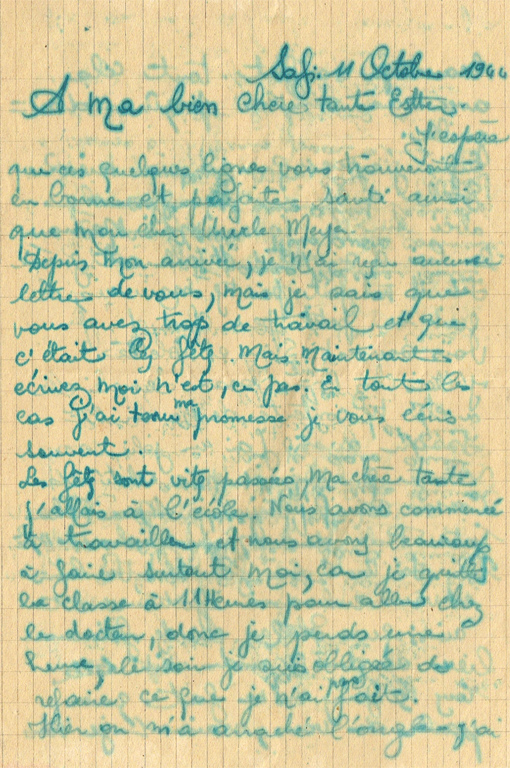 Safi. 11 Octobre 194
A ma bien chère tante Esther.
J'espère
que ces quelques lignes vous trouveront
en bonne et parfaite santé ainsi
que mon cher Uncle Meyer
Depuis mon arrivée, je n'ai reçu aucune
lettre de vous, mais je sais que
vous avez trop de travail et que
c'était les fêtes. Mais maintenant
ecrivez moi n'est, ce pas. En tout les
cas j'ai tenu ma promesse je vous écris
souvent.
Les fêtes sont vite passées, ma chère tante
j'allais à l'école. Nous avons commencé
à travailler et nous avons beaucoup
à faire surtout moi, car je quitte
la classe à 11 Heures pour aller chez
le docteur, donc je perds une
heure, le soir je suis obligée de
refaire ce que je n'ai pas fait.
Hier on m'a arraché l'ongle j'ai